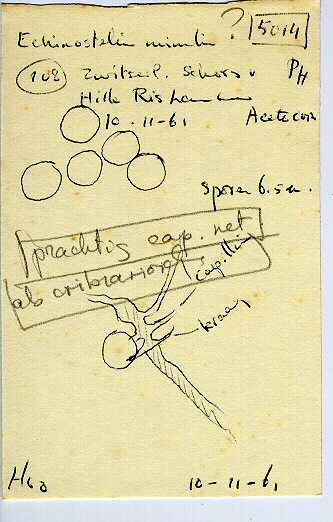 Echinostelium minutum ? 5014
108 Zwitserl. Schors v PH
Hille Ris
10-11-61 Acetocarm
Sporen 6.5 u.
prachtig cap. net
als cribrariora
capilli
kraag
10-11-61